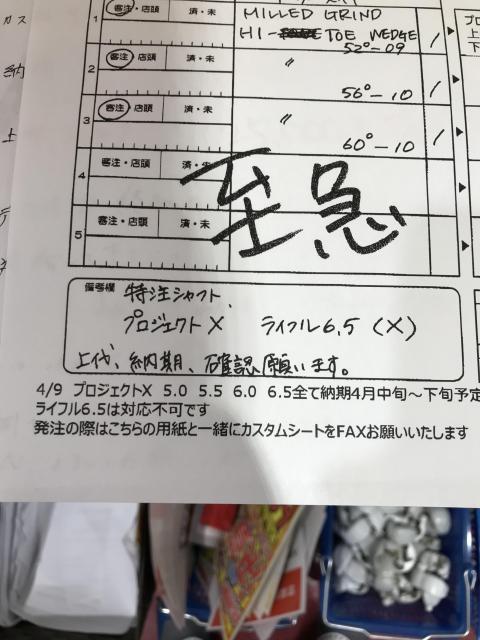 カス
プロ
1 客注・店頭 済・未 MILLED GRIND
HI- TOE WEDGE /
上
下
52°-09
納
2 客注・店頭 済・未 〃
56°-10 /
上
3 客注・店頭 済・未 〃
60°-10 /
4 客注・店頭 済・未
至急
5 客注・店頭 済・未
備考欄 特注シャフト、
プロジェクトX ライフル6.5 (X)
上代、納期、確認願います。
4/9 プロジェクトX 5.0 5.5 6.0 6.5全て納期4月中旬~下旬予定
ライフル6.5は対応不可です
発注の際はこちらの用紙と一緒にカスタムシートをFAXお願いいたします